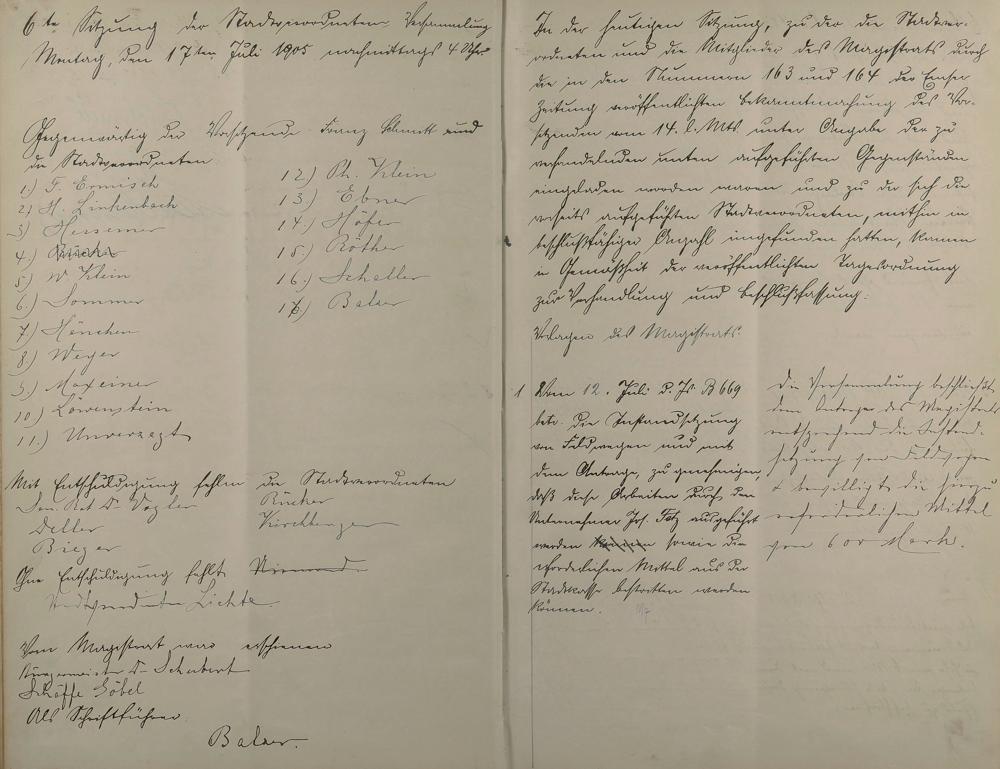 6te Sitzung der Stadtverordneten Versammlung
Montag, den 17ten Juli 1905 nachmittags 4 Uhr
Gegenwärtig der Vorsitzende Franz Schmitt und
die Stadtverordneten
1.) F. Ermisch
2.) H. Linkenbach
3.) Hessemer
4.) Rücker
5.) W. Klein
6.) Sommer
7.) Hänchen
8.) Weyer
9.) Maxeiner
10.) Löwenstein
11.) Unverzagt
12.) Ph. Klein
13.) Ebner
14.) Höfer
15.) Röther
16.) Scheller
17.) Balzer
Mit Entschuldigung fehlen die Stadtverordneten
San. Rat Dr. Vogler
Deller
Bieger
Rücker
Kirchberger
Ohne Entschuldigung fehlt Niemand
Stadtverordneter Lichte.
Vom Magistrat war erschienen
Bürgermeister Dr. Schubert
Schöffe Göbel
Als Schriftführer
Balzer.
In der heutigen Sitzung, zu der die Stadtver-
ordneten und die Mitglieder des Magistrats durch
die in den Nummern 163 und 164 der Emser
Zeitung veröffentlichten Bekanntmachung des Vor-
sitzenden vom 14. l. Mts. unter Angabe der zu
verhandelnden unten aufgeführten Gegenständen
eingeladen worden waren und zu der sich die
vorseits aufgeführten Stadtverordneten, mithin in
beschlußfähiger Anzahl eingefunden hatten, kamen
in Gemäßheit der veröffentlichten Tagesordnung
zur Verhandlung und Beschlußfassung:
Vorlagen des Magistrats.
1 Vom 12. Juli d. Js. B 669
betr. die Instandsetzung
von Feldwegen und mit
dem Antrage, zu genehmigen,
daß diese Arbeiten durch den
Unternehmer Jos. ausgeführt
werden können sowie die
erforderlichen Mittel aus der
Stadtkasse bestritten werden
können.
Die Versammlung beschließt,
dem Antrage des Magistrats
entsprechend die Instand-
setzung von Feldwegen
& bewilligt die hierzu
erforderlichen Mittel
von 600 Mark.